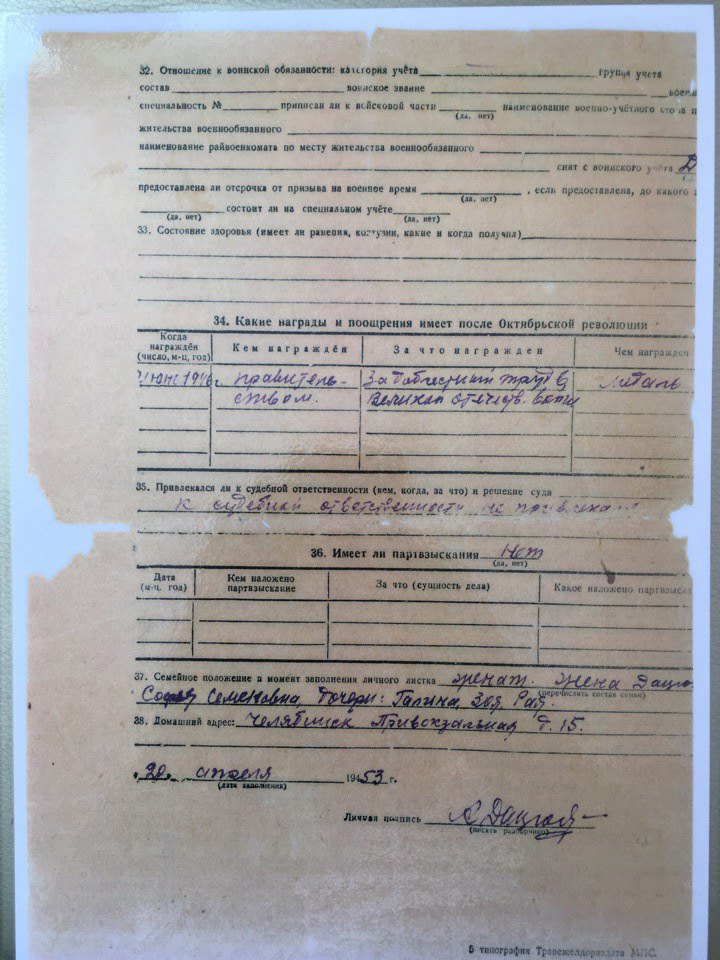 32. Отношение к воинской обязанности: категория учёта группа учета
состав воинское звание военн
специальность № приписан ли к войсковой части наименование военно-учётного стола п
(да, нет)
жительства военнообязанного
наименование райвоенкомата по месту жительства военнообязанного
снят с воинского учёта
предоставлена ли отсрочка от призыва на военное время , если предоставлена, до какого
(да, нет)
состоит ли на специальном учёте
(да, нет) (да, нет)
33. Состояние здоровья (имеет ли ранения, контузии, какие и когда получил)
34. Какие награды и поощрения имеет после Октябрьской революции
Когда награждён (число, м-ц, год) Кем награждён За что награжден Чем награжден
июнь 1946 г. правитель- За доблестный труд в медаль
ством. Великой отечеств. войне
35. Привлекался ли к судебной ответственности (кем, когда, за что) и решение суда
к судебной ответственности не привлекал
36. Имеет ли партвзыскания Нет
(да, нет)
Дата (м-ц, год) Кем наложено партвзыскание За что (сущность дела) Какое наложено партвзыска
37. Семейное положение в момент заполнения личного листка женат. жена Дацко
(перечислить состав семьи)
Софья Семеновна, Дочери: Галина, Зоя, Рая.
38. Домашний адрес: Челябинск Привокзальная д. 15.
20. апреля 1953 г.
(дата заполнения)
Личная подпись
(писать разборчиво)
5 типография Трансжелдориздата МПС.